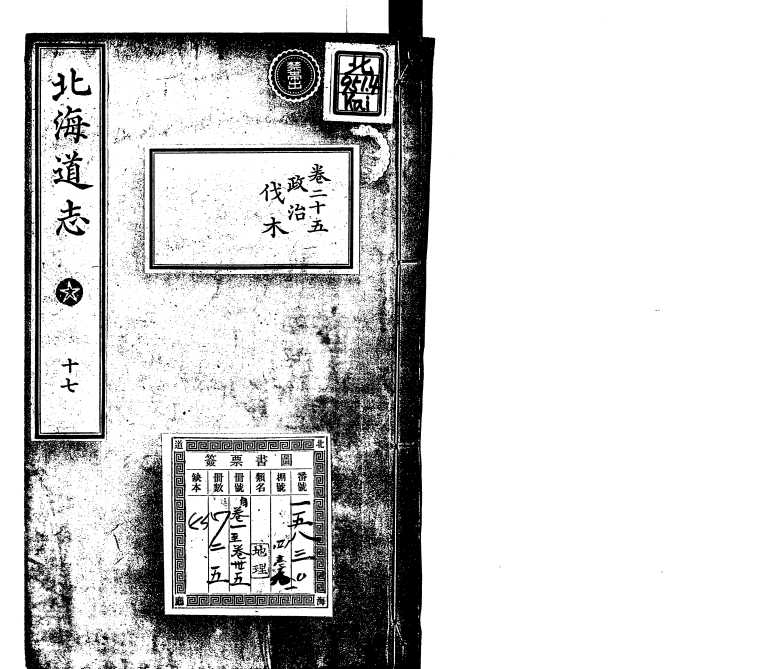 北海道志
十七
禁帯出
北
951.4
Kai
卷二十五
政治
伐木
北海道廳
圖書票簽
番號
一五八三〇
棚號
類名
地理
冊號
自卷一至卷卅五
冊數
二五
缺本